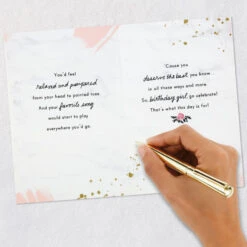 You'd feel
relaxed and pampered
from your head to painted toes.
And your favorite song
would start to play
everywhere you'd go.
'Cause you
deserve the best, you know...
in all these ways and more.
So, birthday girl, go celebrate!
That's what this day is for!